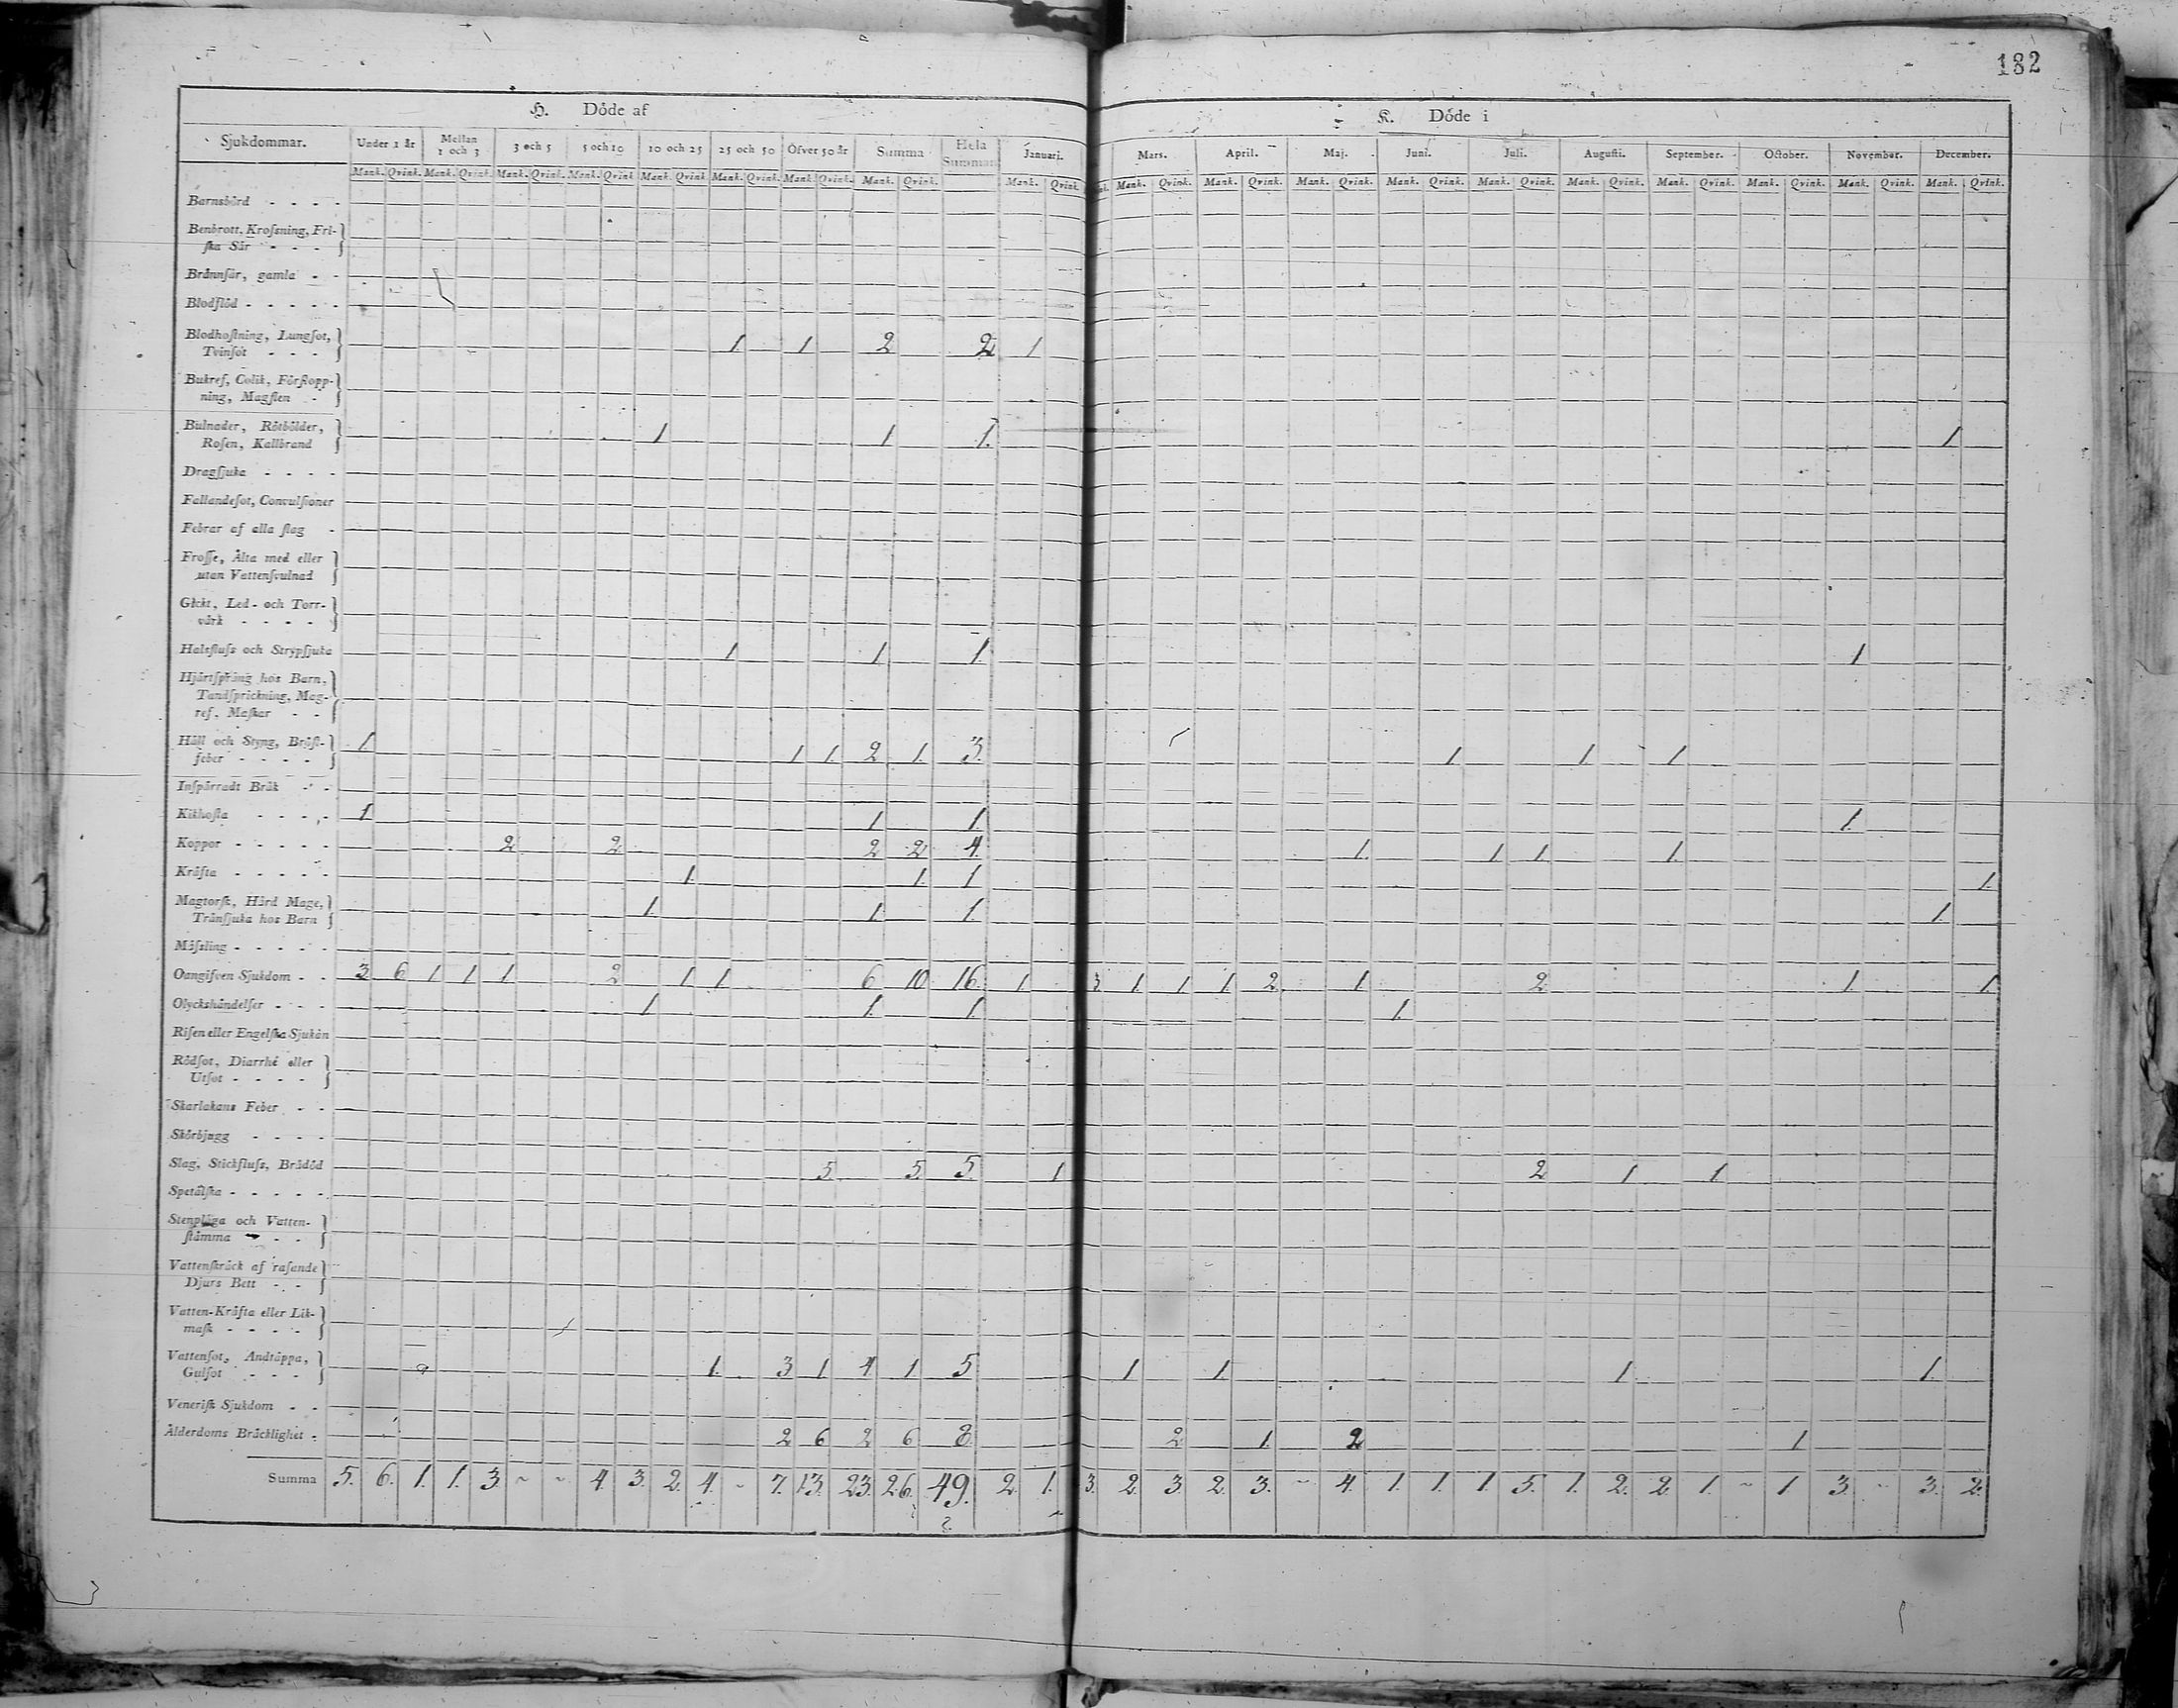 182
H. Döde af
K. Döde i
Sjukdommar. Under 1 år Mellan 1 och 3 3 och 5 5 och 10 10 och 25 25 och 50 Öfver 50 år Summa Hela Summan Januari. Mars. April. Maj. Juni. Juli. Augusti. September. October. November. December.
Mank. Qvink. Mank. Qvink. Mank. Qvink. Mank. Qvink. Mank. Qvink. Mank. Qvink. Mank. Qvink. Mank. Qvink. Mank. Qvink. Mank. Qvink. Mank. Qvink. Mank. Qvink. Mank. Qvink. Mank. Qvink. Mank. Qvink. Mank. Qvink. Mank. Qvink. Mank. Qvink. Mank. Qvink.
Barnsbörd - - - -
Benbrott, Krossning, Fri-
ska Sår - - -
Brännsår, gamla - -
Blodflöd - - - - -
Blodhostning, Lungsot,
Tvinsot - - - 1 1 2 2 1
Bukref, Colik, Förstopp-
ning, Magsten -
Bulnader, Rötbölder,
Rosen, Kallbrand 1 1 1. 1
Dragsjuka - - - -
Fallandesot, Convulsioner
Febrar af alla slag -
Frosse, Älta med eller
utan Vattensvulnad
Gickt, Led- och Torr-
värk - - - -
Halsfluss och Strypsjuka 1 1 1 1
Hjärtspräng hos Barn,
Tandsprickning, Mag-
ref, Maskar - -
Håll och Styng, Bröst-
feber - - - - 1 1 1. 2 1. 3. 1 1 1
Inspärradt Bråk - -
Kikhosta - - - - 1 1 1. 1.
Koppor - - - - - 2 2 2 2 4. 1. 1 1 1.
Kräfta - - - - - 1. 1. 1 1.
Magtorsk, Hård Mage,
Tränsjuka hos Barn 1. 1. 1. 1.
Mässling - - - - -
Oangifven Sjukdom - - 3 6 1 1 1 2 1 1 6 10 16. 1 3 1. 1 1 2. 1 2 1 1
Olyckshändelser - - - 1 1. 1. 1.
Risen eller Engelska Sjukan
Rödsot, Diarrhé eller
Utsot - - - -
Skarlakans Feber - -
Skörbjugg - - - -
Slag, Stickfluss, Brådöd 5. 5. 5. 1 2 1 1
Spetälska - - - - -
Stenplåga och Vatten-
stämma - - -
Vattenskräck af rasande
Djurs Bett - -
Vatten-Kräfta eller Lik-
mask - - - -
Vattensot, Andtäppa,
Gulsot - - - 1. 3 1 4 1 5 1 1 1 1.
Venerisk Sjukdom - -
Ålderdoms Bräcklighet - 2 6 2 6 8. 2 1. 2 1
Summa 5. 6. 1. 1. 3. ~ ~ 4. 3. 2. 4. ~ 7. 13. 23. 26. 49. 2. 1. 3. 2. 3. 2. 3. ~ 4. 1. 1. 1 5. 1. 2. 2. 1 ~ 1 3. ~ 3. 2.